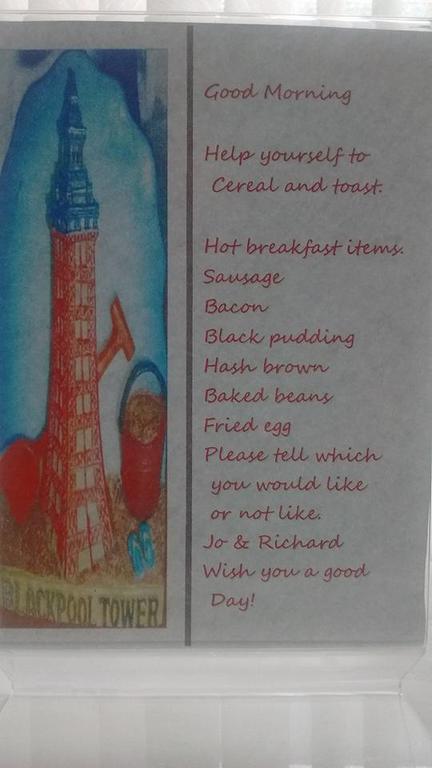 Good Morning
Help yourself to
Cereal and toast.
Hot breakfast items.
Sausage
Bacon
Black pudding
Hash brown
Baked beans
Fried egg
Please tell which
you would like
or not like.
Jo & Richard
Wish you a good
Day!
BLACKPOOL TOWER